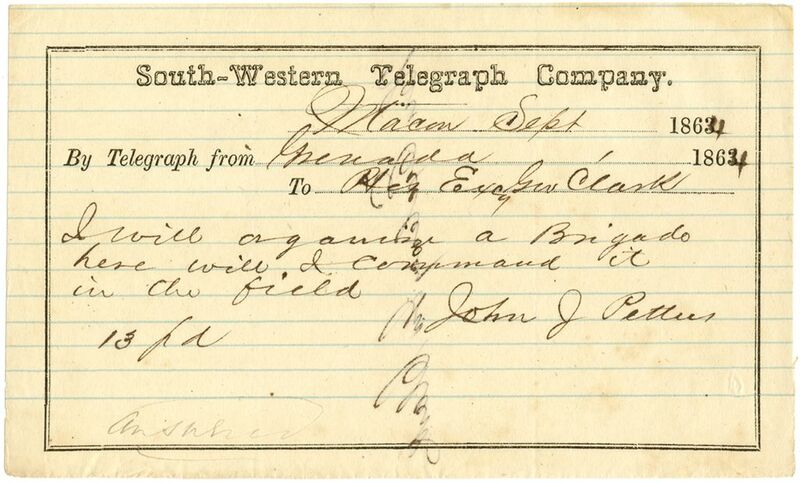 South-Western Telegraph Company.
Macon Sept 1864
By Telegraph from Grenada 1864
To His Excy Gov Clark
I will organise a Brigade
here will I command it
in the field
John J Pettus
13 pd
Answered